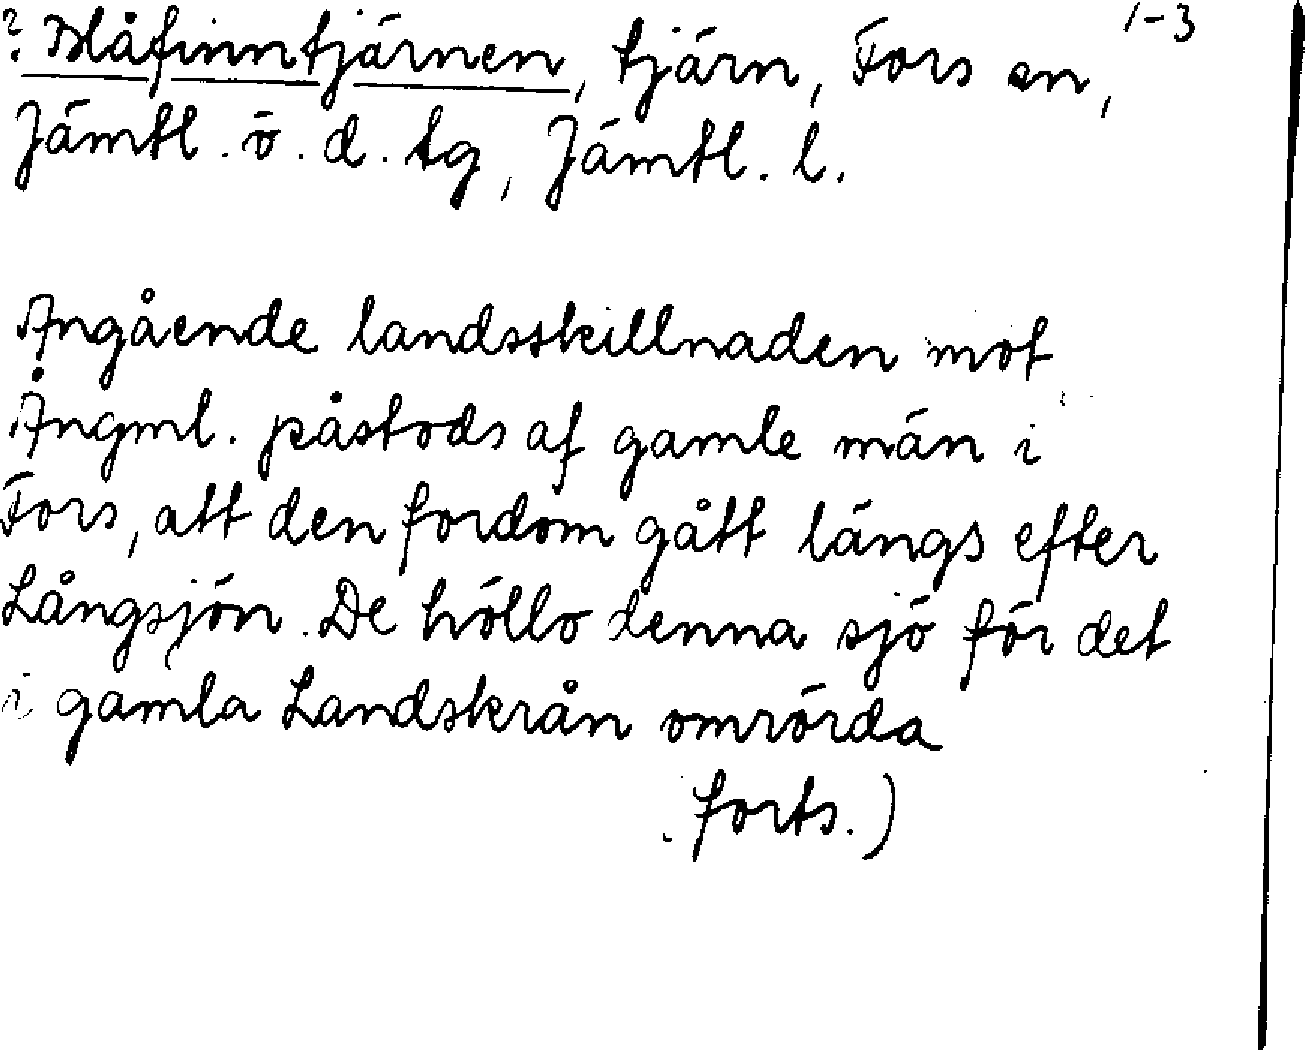 1-3
? Blåfinntjärnen, tjärn, Fors sn,
Jämtl. ö. d. tg, Jämtl. l.
Angående landsskillnaden mot
Ångml. påstods af gamle män i
Fors, att den fordom gått längs efter
Långsjön. De höllo denna sjö för det
i gamla Landskrån omrörda
forts.)